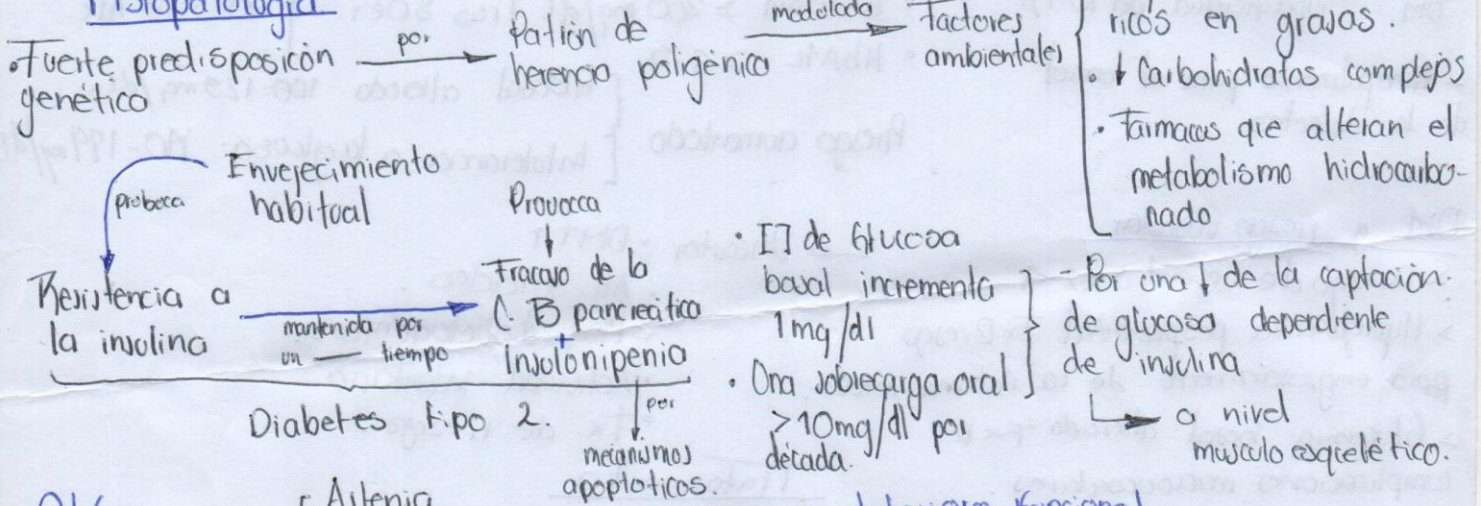 Fisiopatología
• Fuerte predisposición
genético
por
Patrón de
herencia poligénica
modulada
Factores
ambientales
ricos en grasas.
↓ Carbohidratos complejos
• Farmacos que alteran el
metabolismo hidrocarbo-
nado
Envejecimiento
habitual
probeca
Resistencia a
la insulina
mantenida por
un tiempo
Provocca
↓
Fracaso de la
C. B pancreática
+
Insulinipenia
Diabetes tipo 2.
por
mecanismos
apoptoticos.
• [] de Glucosa
basal incrementa
1mg/dl
• Una sobrecarga oral
>10mg/dl por
década.
- Por una ↓ de la captación
de glucosa dependiente
de insulina
a nivel
musculo esquelético.
Astenia
funcional